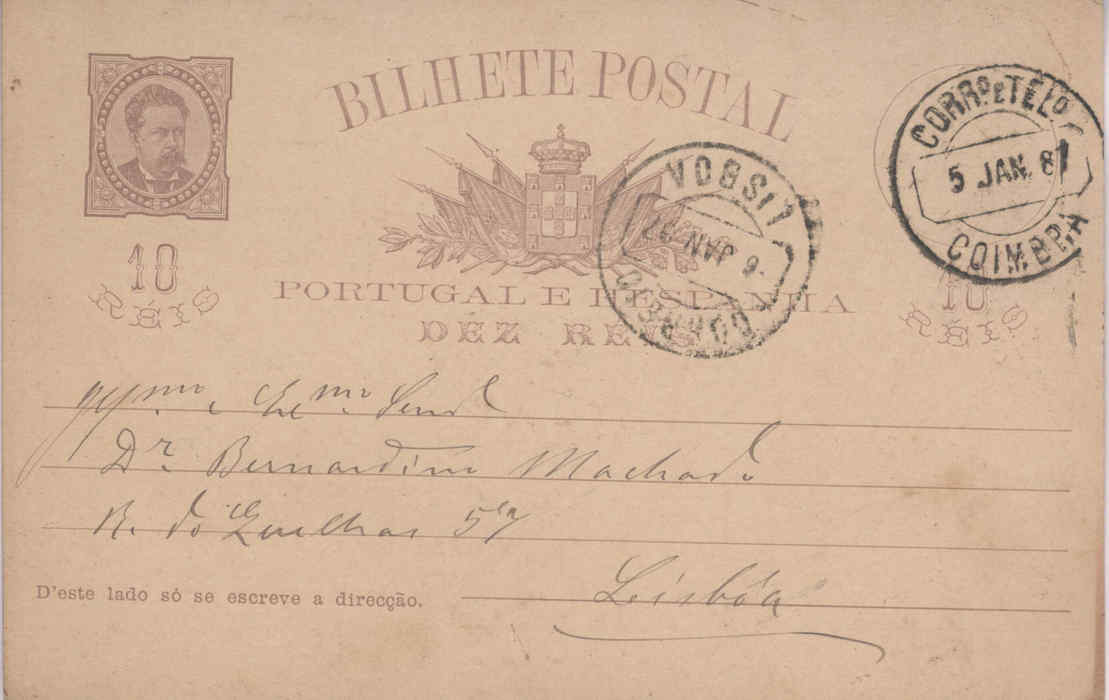 BILHETE POSTAL
10 RÉIS
PORTUGAL E HESPANHA
DEZ REIS
10 RÉIS
CORRO. E TELO.
5 JAN. 87
COIMBRA
LISBOA
6 JAN 87
Illmo. e Exmo. Senr.
Dr. Bernardino Machado
R. do Quelhas 57
Lisbôa
D'este lado só se escreve a direcção.